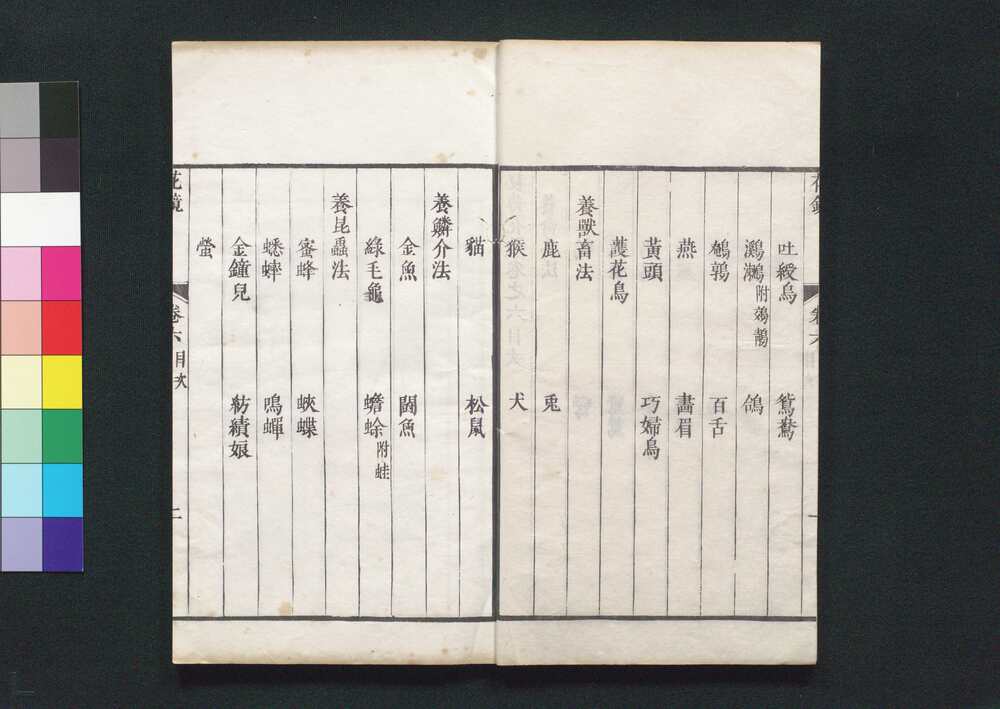 吐綬鳥 鴛鴦
鸂鶒附鵁鶄 鴿
鵪鶉 百舌
燕 畵眉
黃頭 巧婦鳥
護花鳥
養獸畜法
鹿 兎
猴 犬
貓 松鼠
養鱗介法
金魚 鬪魚
綠毛龜 蟾蜍附蛙
養昆蟲法
蜜蜂 蛺蝶
蟋蟀 鳴蟬
金鐘兒 紡績娘
螢
花鏡 卷六目次 二